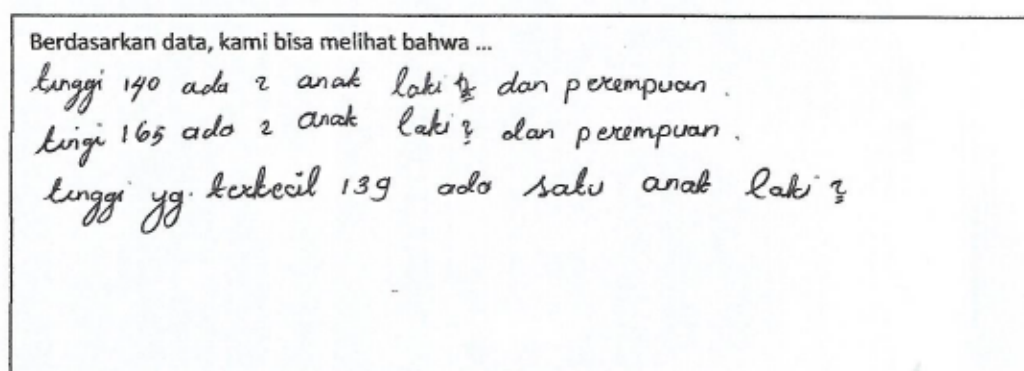 Berdasarkan data, kami bisa melihat bahwa ...
tinggi 140 ada 2 anak laki 2 dan perempuan.
tingi 165 ada 2 anak laki 2 dan perempuan.
tinggi yg. terkecil 139 ada satu anak laki 2